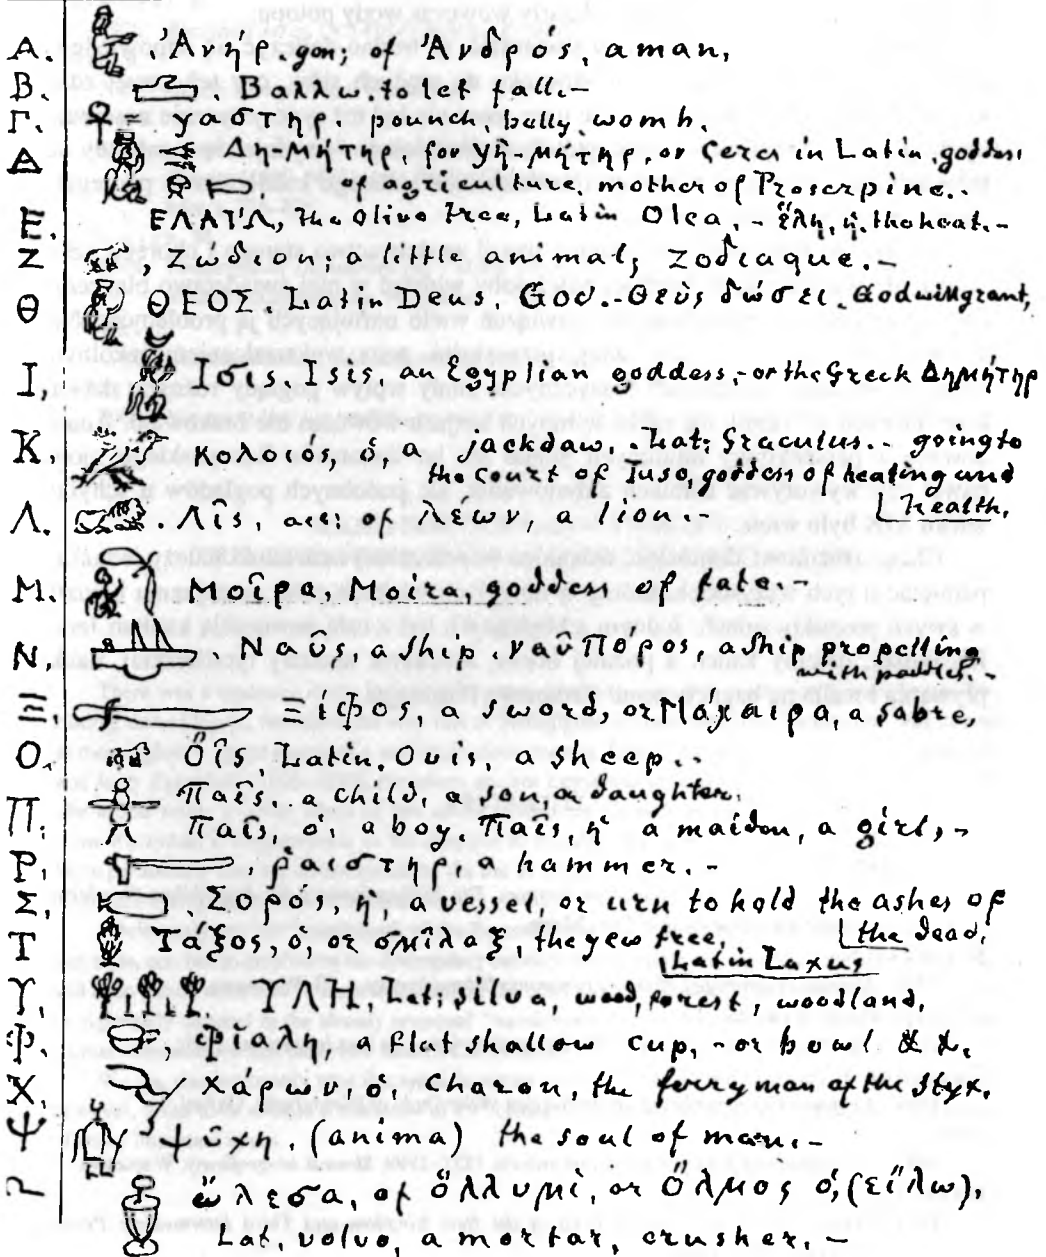 Α. Ἀνήρ. gen; of Ἀνδρός, a man,
Β. Βαλλω, to let fall.–
Γ. = γαστηρ, pouch, belly, womb.
Δ Δημήτηρ, for γῆ-μήτηρ, or Ceres in Latin, goddess
of agriculture, mother of Proserpine..
Ε. ΕΛΑΊΑ, the Olive tree, Latin Olea, – ἕλη, ἡ, the heat.–
Ζ , Ζώδιον; a little animal, Zodiaque.–
Θ ΘΕΟΣ, Latin Deus, God.–Θεὸς δώσει. God will grant,
Ι, Ισις, Isis, an Egyptian goddess,–or the Greek Δημήτηρ
Κ. Κολοιός, ὁ, a jackdaw. Lat: Graculus.. going to
the court of Juso, goddess of healing and
health.
Λ. . Λῖς, acc: of λεων, a lion.–
Μ. Μοῖρα, Moira, goddess of fate.–
Ν, . Ναῦς, a ship. ναῦπόρος, a ship propelling
with paddles.–
Ξ. Ξίφος, a sword, or Μάχαιρα, a sabre,
Ο. Ὄϊς, Latin, Ovis, a sheep..
Παῖς, a child, a son, a daughter.
Π. Παῖς, ὁ, a boy, Παῖς, ἡ a maiden, a girl,–
Ρ, , ῥαιστηρ, a hammer.–
Σ, . Σορός, ἡ, a vessel, or urn to hold the ashes of
the dead.
Τ Τάξος, ὁ, or σμῖλαξ, the yew tree,
Latin Taxus
Υ, . ΥΛΗ, Lat; silva, wood, forest, woodland,
Φ. , φιαλη, a flat shallow cup,–or bowl && .
Χ, Χάρων, ὁ, Charon, the ferryman of the Styx.
Ψ ψῦχη. (anima) the soul of man.–
ὤλεσα, of ὄλλυμι, or Ὅλμος ὁ, (εἴλω),
Lat, volvo, a mortar, crusher,–